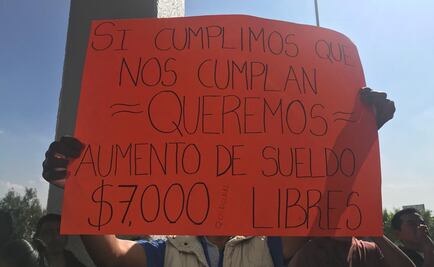 SI CUMPLIMOS QUE
NOS CUMPLAN
=QUEREMOS=
AUMENTO DE SUELDO
$7,000 LIBRES